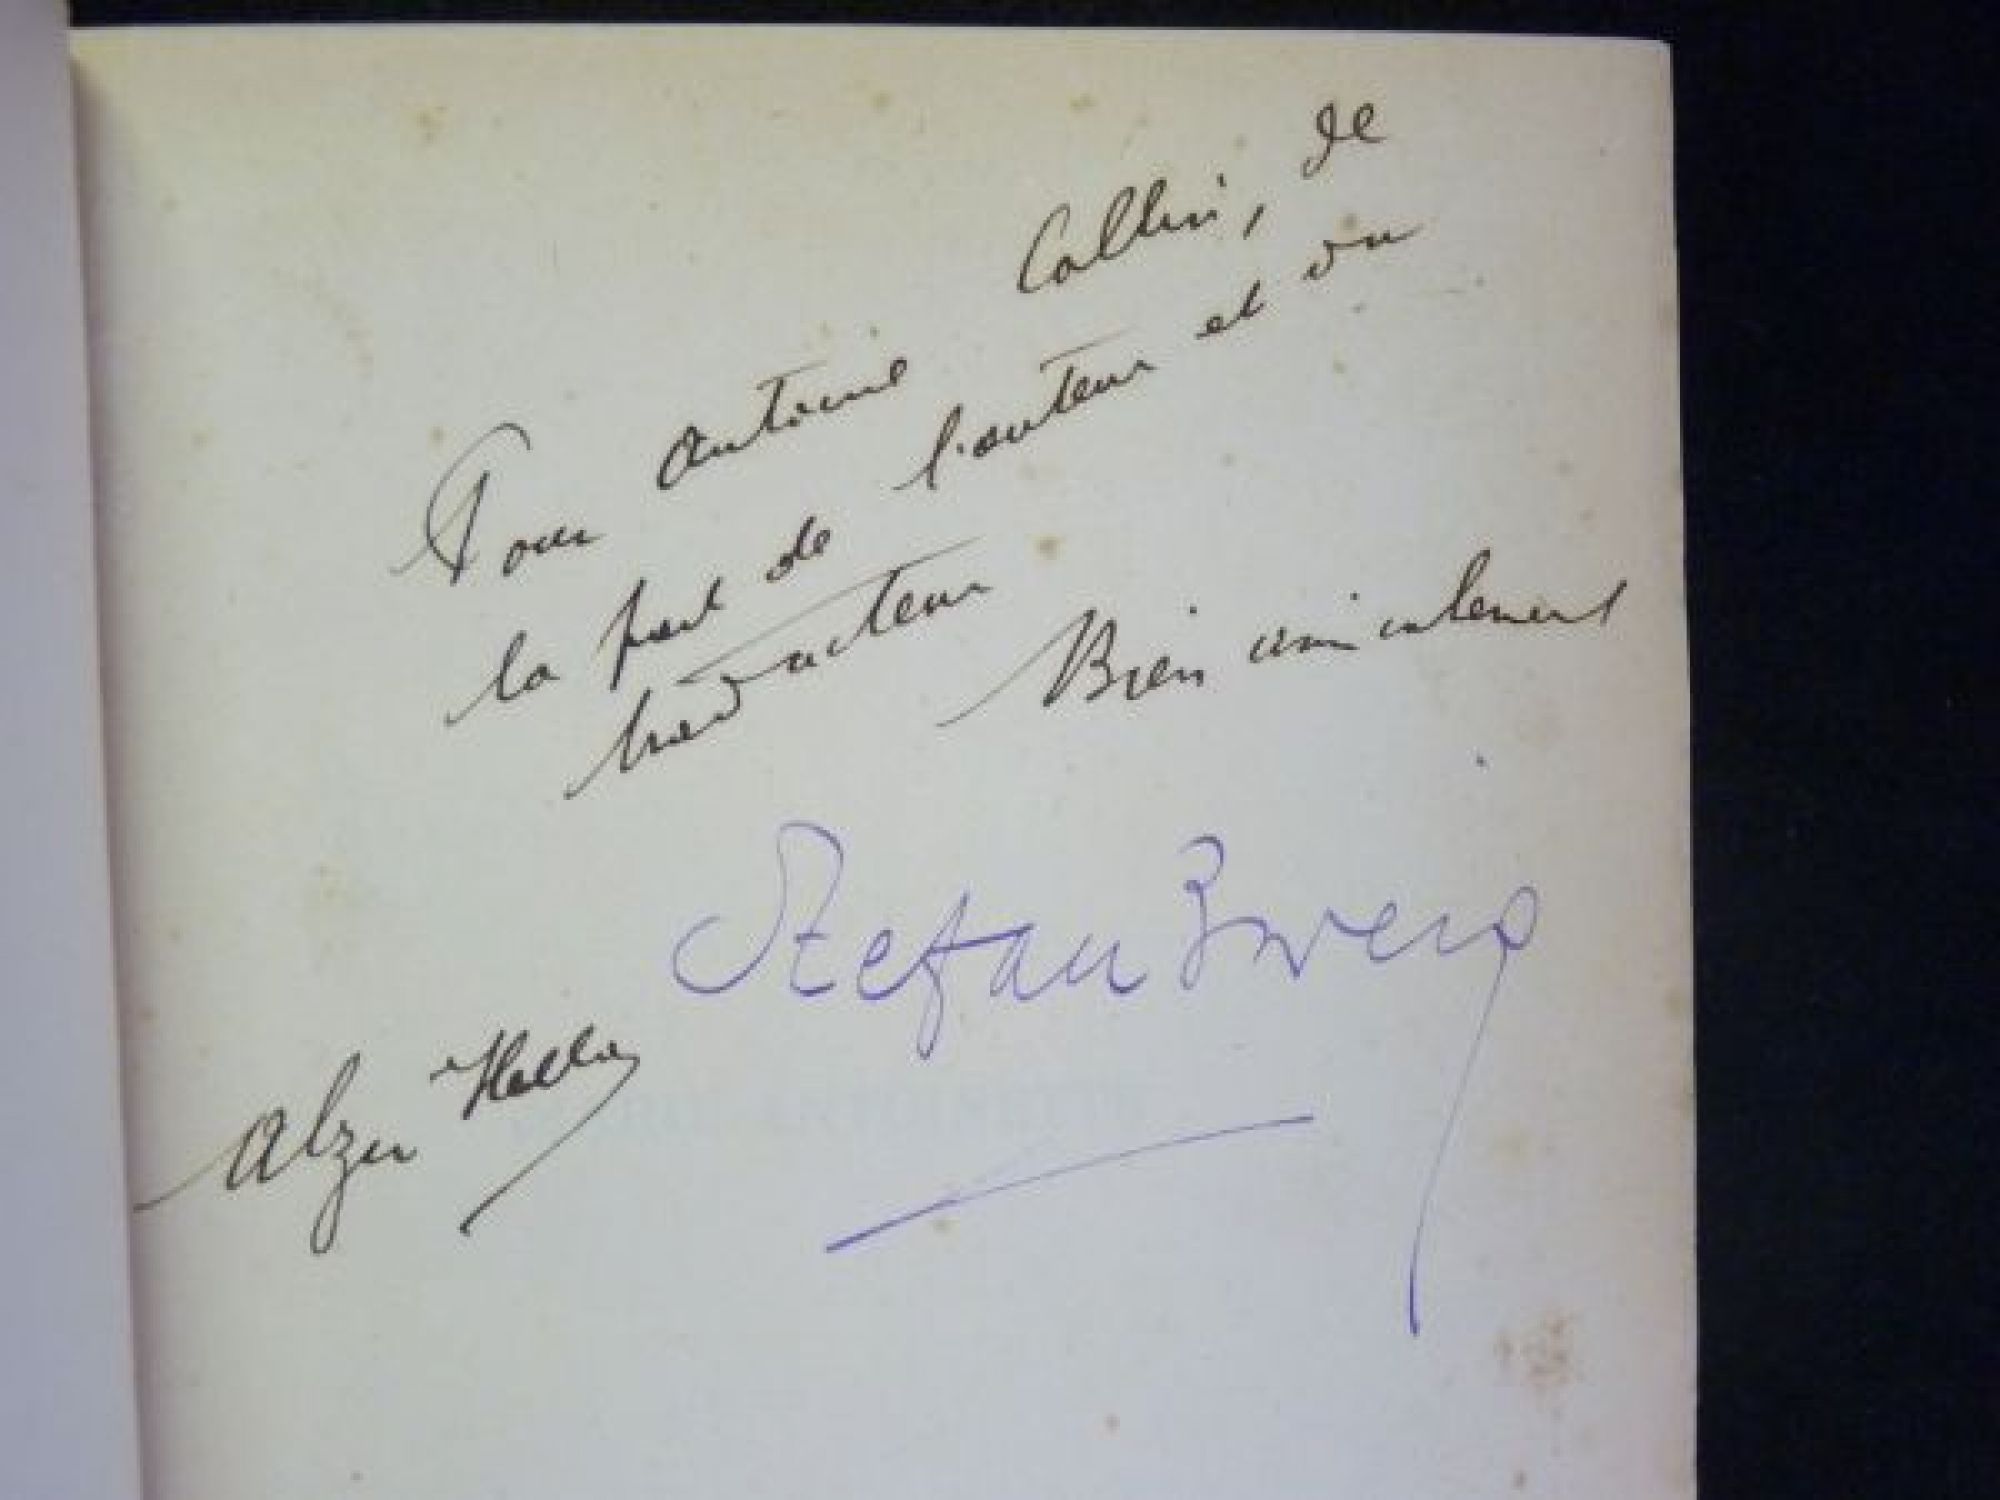 Pour Antoine Collin, de
la part de l'auteur et du
traducteur
Bien amicalement
Stefan Zweig
Alzir Hella